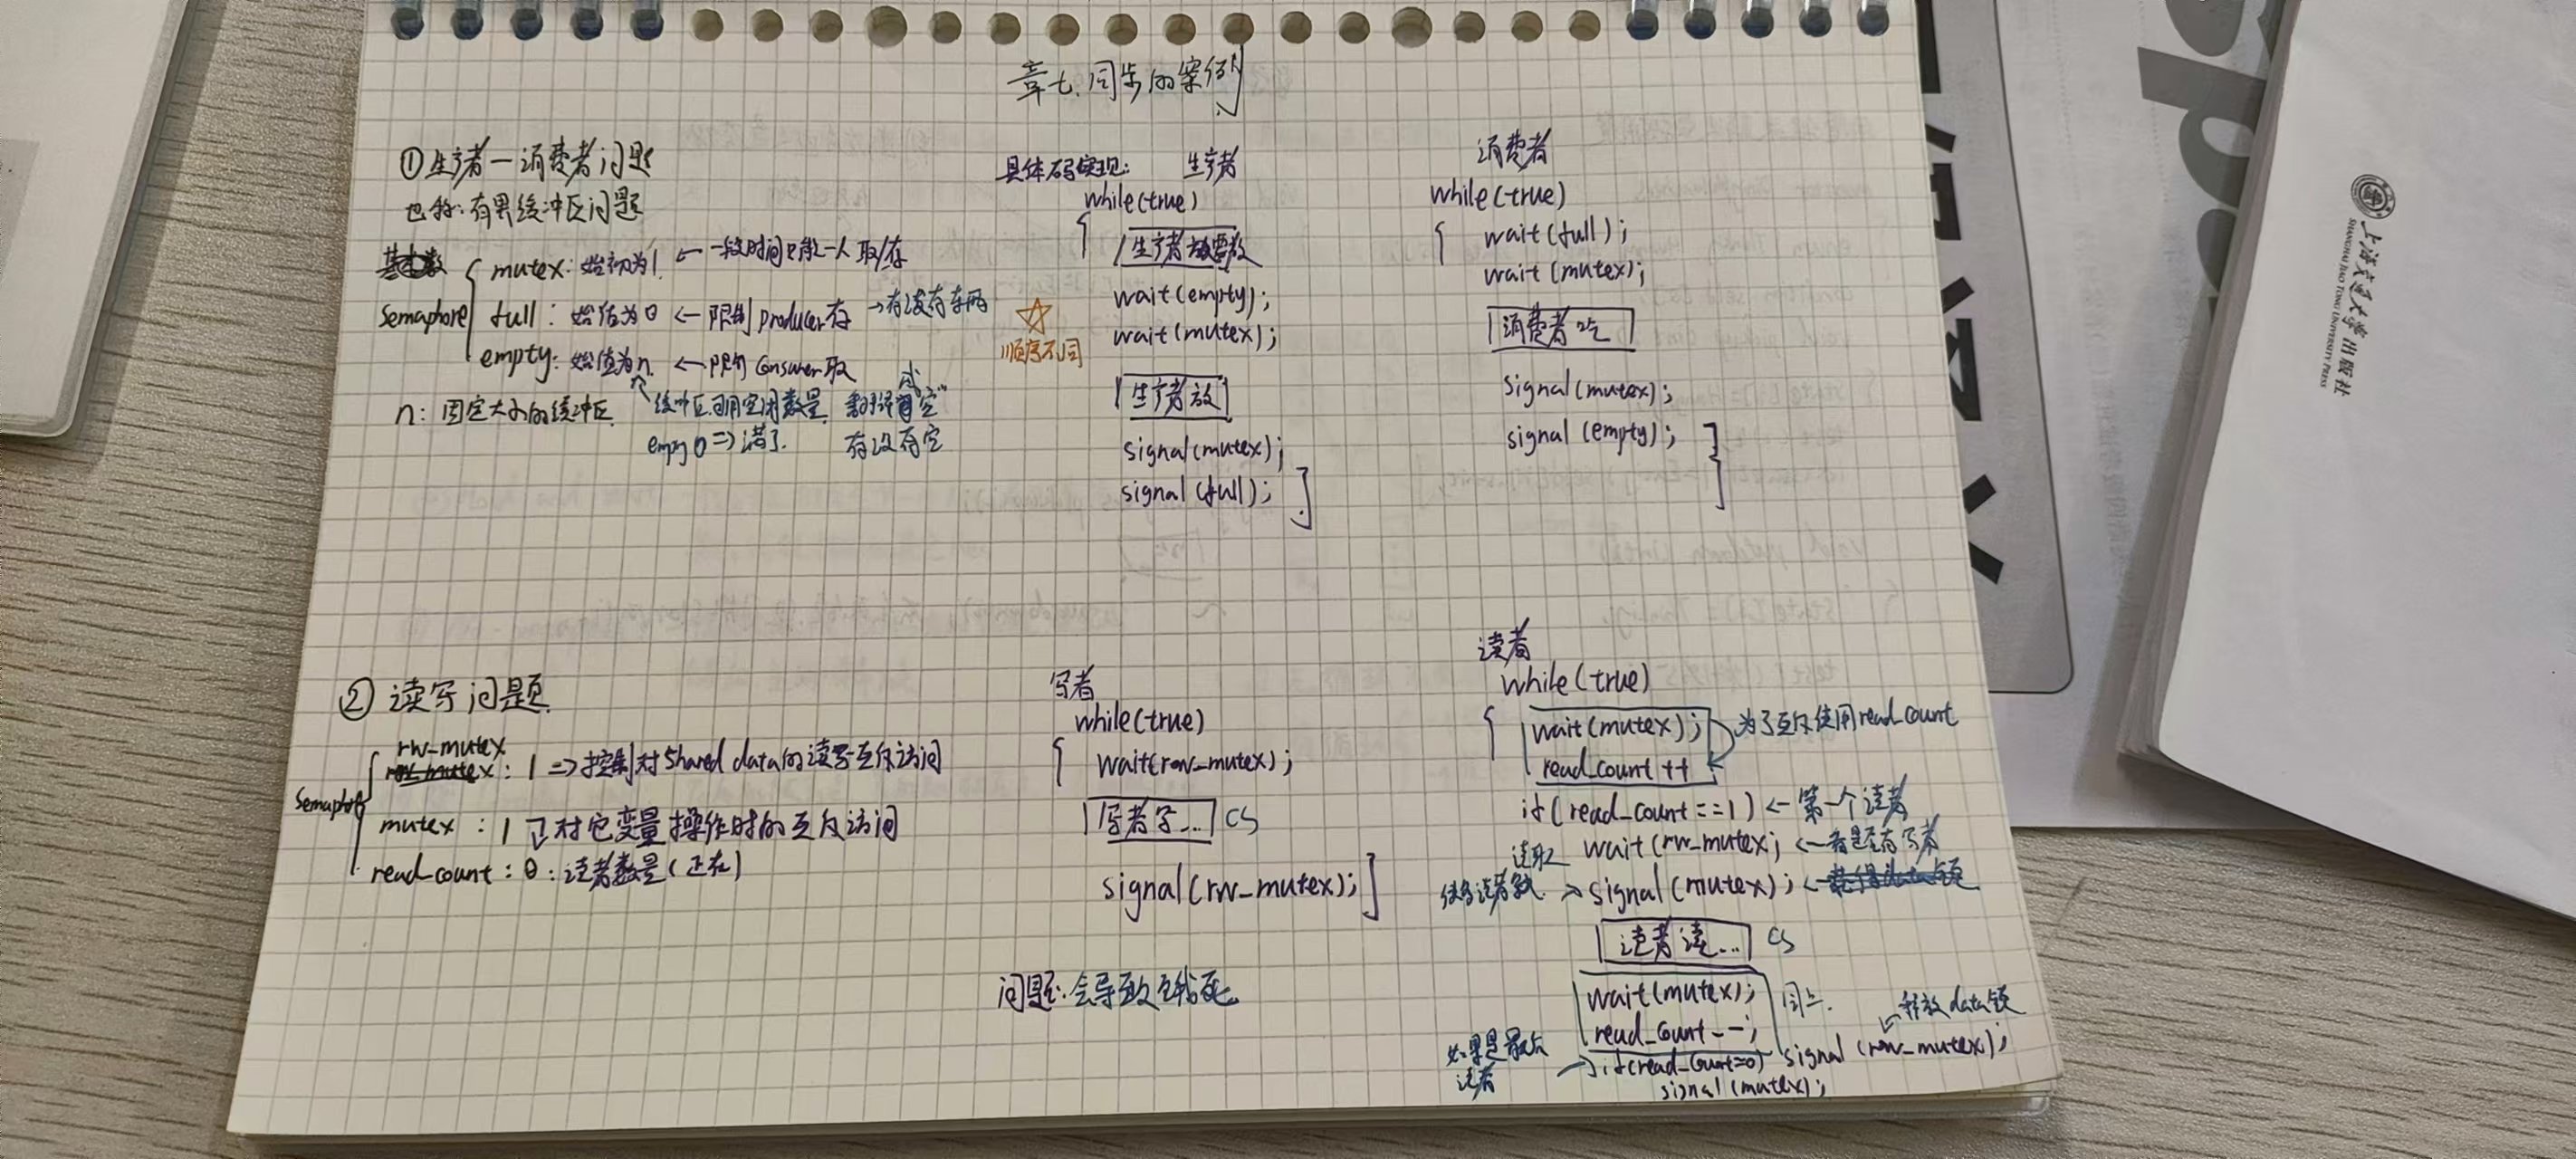 章七.同步的案例
①生产者—消费者问题
也称:有界缓冲区问题
Semaphore
mutex: 始初为1. ← 一段时间只能一人取/存
full: 始值为0 ← 限制producer存 →有没有东西
empty: 始值为n. ← 限制Consumer取
n: 固定大小的缓冲区.
缓冲区可用空闲数量
empy 0 => 满了.
有没有空
☆
顺序不同
具体码实现:
生产者
while(true)
{
wait(empty);
wait(mutex);
生产者放
signal(mutex);
signal(full);
}
消费者
while(true)
{
wait(full);
wait(mutex);
消费者吃
signal(mutex);
signal(empty);
}
②读写问题.
Semaphore
rw_mutex
: 1 => 控制对Shared data的读写互斥访问
mutex : 1 对它变量操作时的互斥访问
read_count : 0 : 读者数量(正在)
写者
while(true)
{
wait(rw_mutex);
写者写... CS
signal(rw_mutex);
}
问题:会导致饿死.
读者
while(true)
{
wait(mutex); 为了互斥使用read_count
read_count ++
if( read_count ==1 ) ← 第一个读者
wait(rw_mutex; ← 看是否有写者
→ signal(mutex); ←
读者读... CS
wait(mutex); 同上.
read_count --;
← 释放data锁
如果是最后
读者
→ if(read_count=0) signal (rw_mutex);
signal (mutex);
上海交通大学出版社
SHANGHAI JIAO TONG UNIVERSITY PRESS